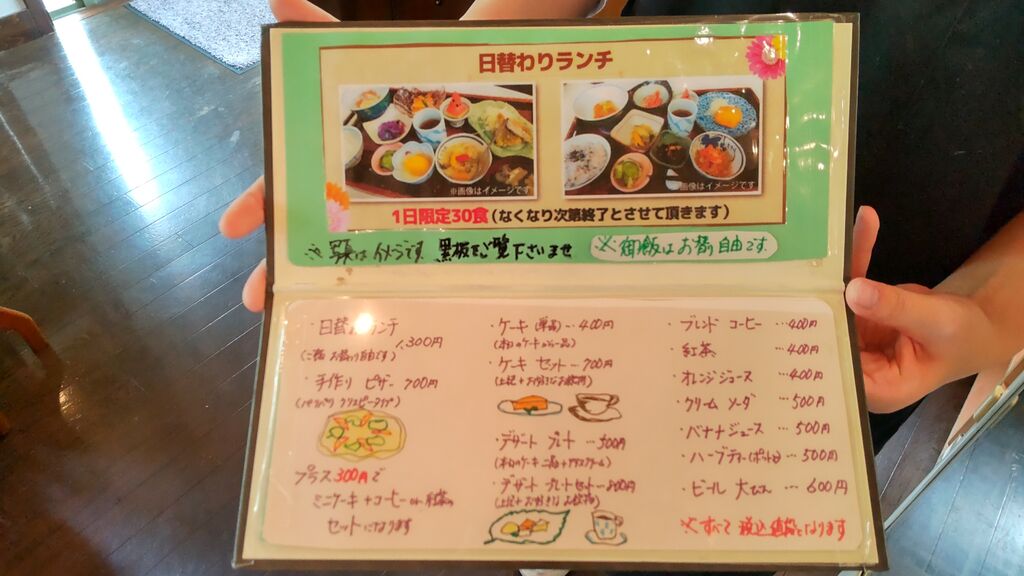 日替わりランチ
※画像はイメージです
※画像はイメージです
1日限定30食(なくなり次第終了とさせて頂きます)
※写真はイメージです 黒板をご覧下さいませ
※御飯はお替り自由です
・日替わりランチ
1,300円
(ご飯 お替り自由です)
・手作り ピザ 700円
(パリパリ クリスピータイプ)
プラス300円で
ミニケーキ+コーヒーor紅茶の
セットになります
・ケーキ(単品)…400円
(本日のケーキから一品)
・ケーキ セット…700円
(上記+お好きなお飲物)
・デザート プレート …500円
(本日のケーキ二品+アイスクリーム)
・デザート プレートセット…800円
(上記+お好きなお飲物)
・ブレンド コーヒー …400円
・紅茶 …400円
・オレンジジュース …400円
・クリーム ソーダ …500円
・バナナジュース …500円
・ハーブティー(ポット) …500円
・ビール 大びん …600円
※すべて 税込価格となります